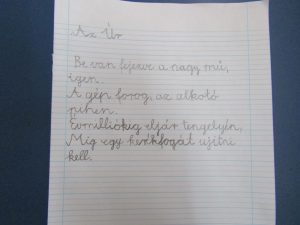 Az Úr
Be van fejezve a nagy mű,
igen.
A gép forog, az alkotó
pihen.
Évmilliókig eljár tengelyén,
Míg egy kerékfogát ujítni
kell.